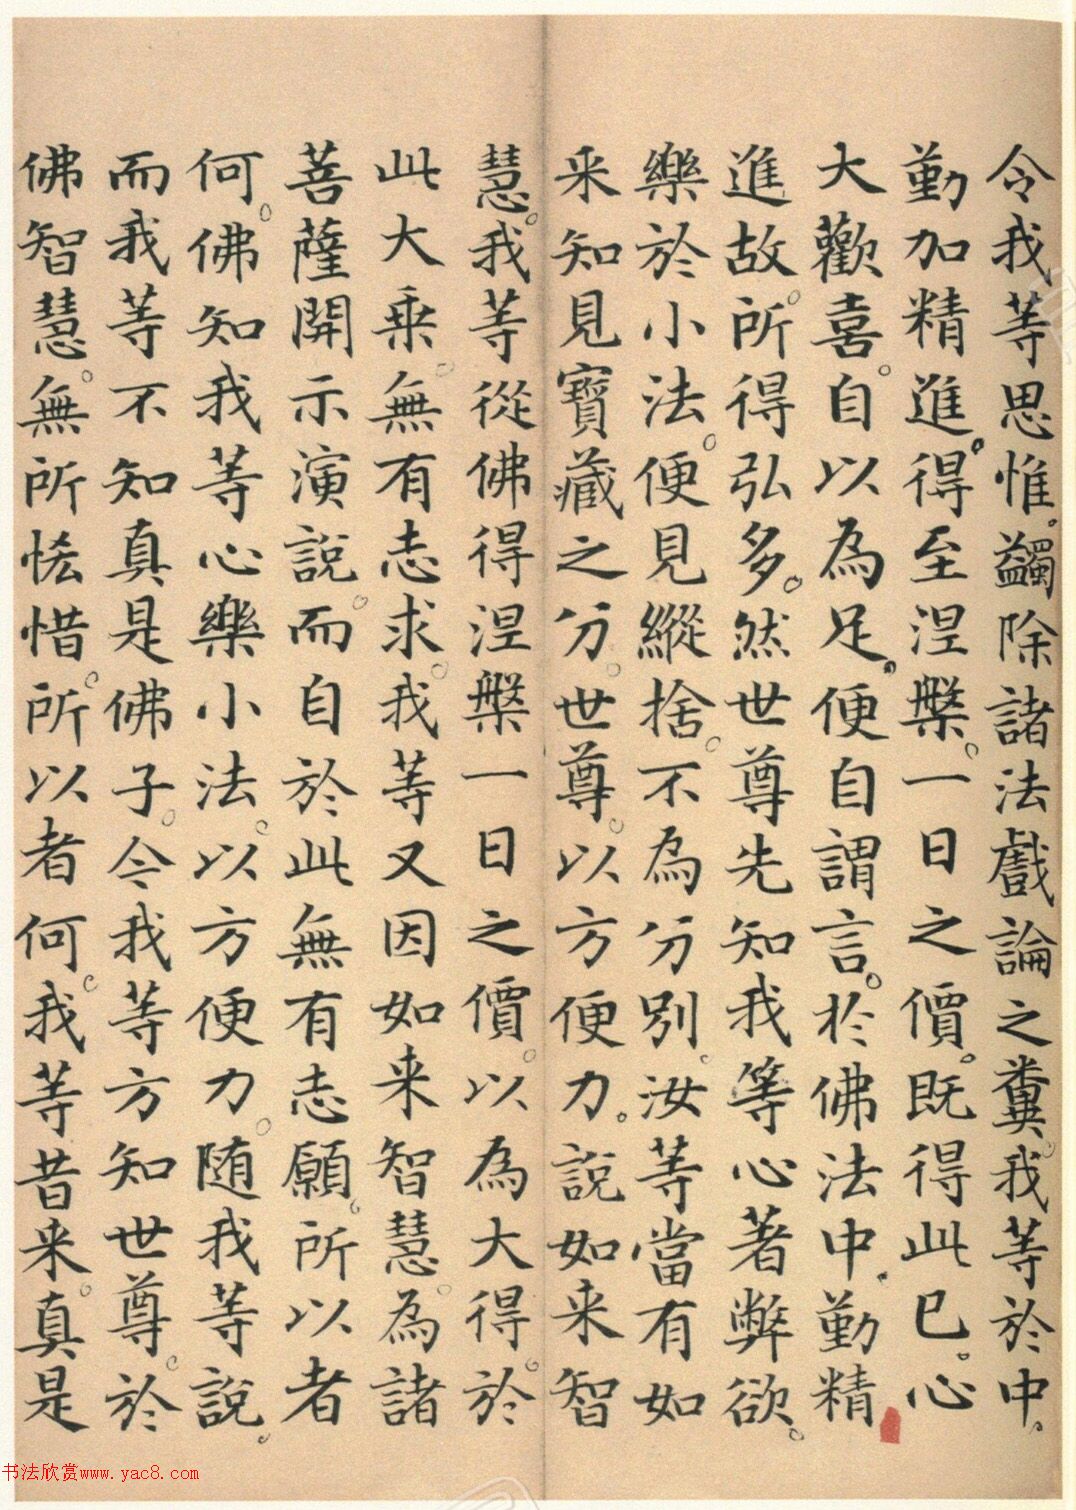 令我等思惟。蠲除諸法戲論之糞。我等於中。
勤加精進。得至涅槃。一日之價。既得此已。心
大歡喜。自以為足。便自謂言。於佛法中。勤精
進故。所得弘多。然世尊先知我等心著弊欲。
樂於小法。便見縱捨。不為分別。汝等當有如
来知見寶藏之分。世尊。以方便力。說如来智
慧。我等從佛得涅槃一日之價。以為大得。於
此大乘。無有志求。我等又因如来智慧。為諸
菩薩開示演說。而自於此無有志願。所以者
何。佛知我等心樂小法。以方便力。随我等說。
而我等不知真是佛子。今我等方知世尊。於
佛智慧。無所悋惜。所以者何。我等昔来。真是
书法欣赏www.yac8.com